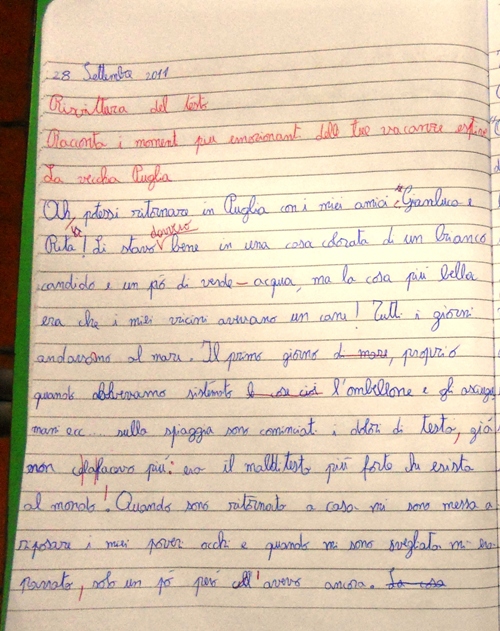 28 Settembre 2011
Riscrittura del testo
Racconta i momenti più emozionanti delle tue vacanze estive
La vecchia Puglia
Oh, potessi ritornare in Puglia con i miei amici: Gianluca e
Rita! Lì stavo davvero bene in una casa colorata di un bianco
candido e un pò di verde-acqua, ma la cosa più bella
era che i miei vicini avevano un cane! Tutti i giorni
andavamo al mare. Il primo giorno di mare, proprio
quando abbiamo sistemato le cose cioè l'ombellone e gli asciuga
mani ecc... sulla spiaggia sono cominciati i dolori di testa, già
non ce la facevo più: era il mal di testa più forte che esista
al mondo! Quando sono ritornata a casa mi sono messa a
riposare i miei poveri occhi e quando mi sono svegliata mi era
passato, solo un pò però ce l'avevo ancora. La cosa